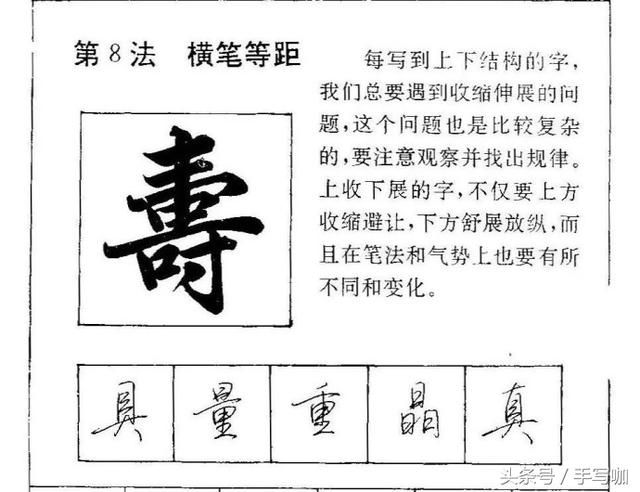 第8法 横笔等距
每写到上下结构的字，
我们总要遇到收缩伸展的问
题，这个问题也是比较复杂
的，要注意观察并找出规律。
上收下展的字，不仅要上方
收缩避让，下方舒展放纵，而
且在笔法和气势上也要有所
不同和变化。
壽
具 量 重 晶 真
头条号/手写咖